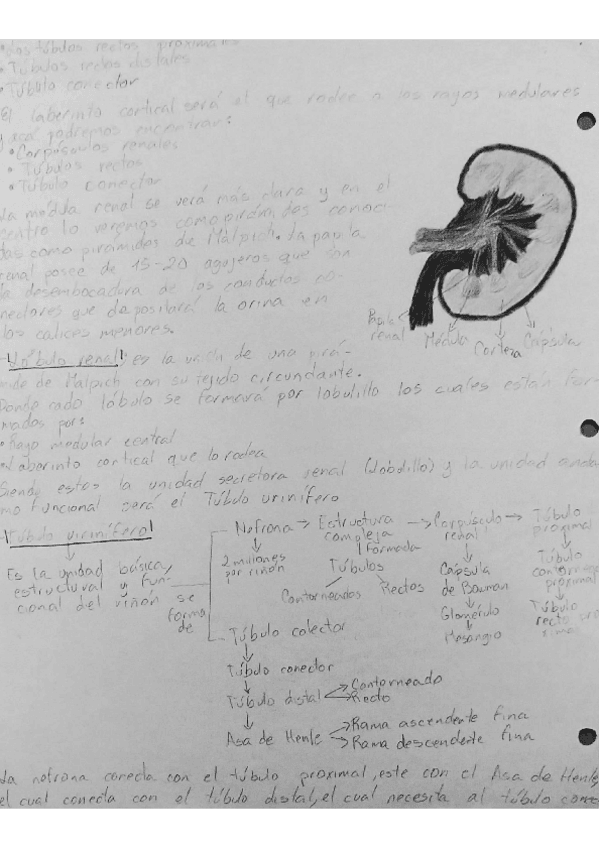 •Los túbulos rectos proximales
•Túbulos rectos distales
•Túbulo conector
El laberinto cortical será el que rodee a los rayos medulares
y acá podremos encontrar:
•Corpúsculos renales
•Túbulos rectos
•Túbulo conector
La médula renal se verá más clara y en el
centro lo veremos como pirámides conoci-
das como pirámides de Malpich. La papila
renal posee de 15-20 agujeros que son
la desembocadura de los conductos co-
nectores que depositará la orina en
los calices menores.
Papila renal
Médula
Corteza
Cápsula
-Lóbulo renal: es la unión de una pirá-
mide de Malpich con su tejido circundante.
Donde cado lóbulo se formara por lobulillo los cuales están for-
mados por:
•Rayo medular central
•Laberinto cortical que lo rodea
Siendo estos la unidad secretora renal (Lobulillo) y la unidad anato
mo funcional será el Túbulo urinífero
-Túbulo urinífero
Es la unidad básica,
estructural y fun-
cional del riñón se
forma
de
Nefrona → Estructura compleja → Corpúsculo renal → Túbulo proximal
2 millones por riñón
Formada
Túbulos
Contorneados Rectos
Cápsula de Bouman
Glomérulo
Mesangio
Túbulo contorneado proximal
Túbulo recto proximo
Túbulo colector
Túbulo conector
Túbulo distal
Contorneado
Recto
Asa de Henle
Rama ascendente fina
Rama descendente fina
La nefrona conecta con el túbulo proximal, este con el Asa de Henle,
el cual conecta con el túbulo distal, el cual necesita al túbulo cone